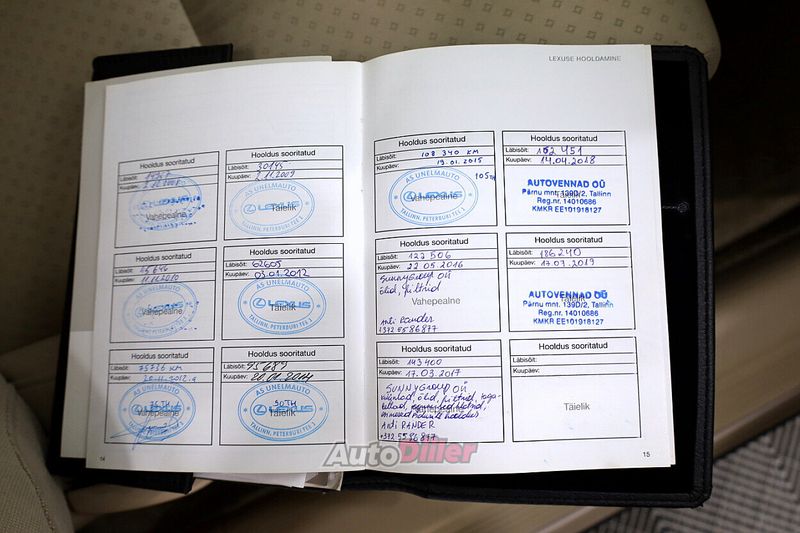 LEXUSE HOOLDAMINE
Hooldus sooritatud
Läbisõit:
Kuupäev: 2.12.2008
LEXUS
Vahepealne
Hooldus sooritatud
Läbisõit: 30145
Kuupäev: 2.11.2009
AS UNELMAUTO
LEXUS
Täielik
TALLINN, PETERBURI TEE 2
Hooldus sooritatud
Läbisõit: 45646
Kuupäev: 11.11.2010
AS UNELMAUTO
LEXUS
Vahepealne
TALLINN, PETERBURI TEE 2
Hooldus sooritatud
Läbisõit: 62605
Kuupäev: 03.01.2012
AS UNELMAUTO
LEXUS
Täielik
TALLINN, PETERBURI TEE 2
Hooldus sooritatud
Läbisõit: 75736 KM
Kuupäev:
AS UNELMAUTO
LEXUS
75TH
Vahepealne
TALLINN, PETERBURI TEE 2
Hooldus sooritatud
Läbisõit: 95689
Kuupäev: 20.01.2014
AS UNELMAUTO
90TH
LEXUS
Täielik
TALLINN, PETERBURI TEE 2
14
Hooldus sooritatud
Läbisõit: 108 340 KM
Kuupäev: 19.01.2015
105TH
AS UNELMAUTO
LEXUS
Vahepealne
TALLINN, PETERBURI TEE 2
Hooldus sooritatud
Läbisõit: 162 451
Kuupäev: 14.04.2018
AUTOVENNAD OÜ
Täielik
Pärnu mnt. 139D/2, Tallinn
Reg.nr. 14010686
KMKR EE101918127
Hooldus sooritatud
Läbisõit: 127 506
Kuupäev: 22.05.2016
SunnyGroup OÜ
õlid, filtrid
Vahepealne
Anti Rander
+372 5586877
Hooldus sooritatud
Läbisõit: 186240
Kuupäev: 17.03.2019
AUTOVENNAD OÜ
Pärnu mnt. 139D/2, Tallinn
Reg.nr. 14010686
KMKR EE101918127
Hooldus sooritatud
Läbisõit: 143400
Kuupäev: 17.03.2017
SUNNYGROUP OÜ
õlid, filtrid,
Vahepealne
Anti RANDER
+372 5586877
Hooldus sooritatud
Läbisõit:
Kuupäev:
Täielik
15
AutoDiller